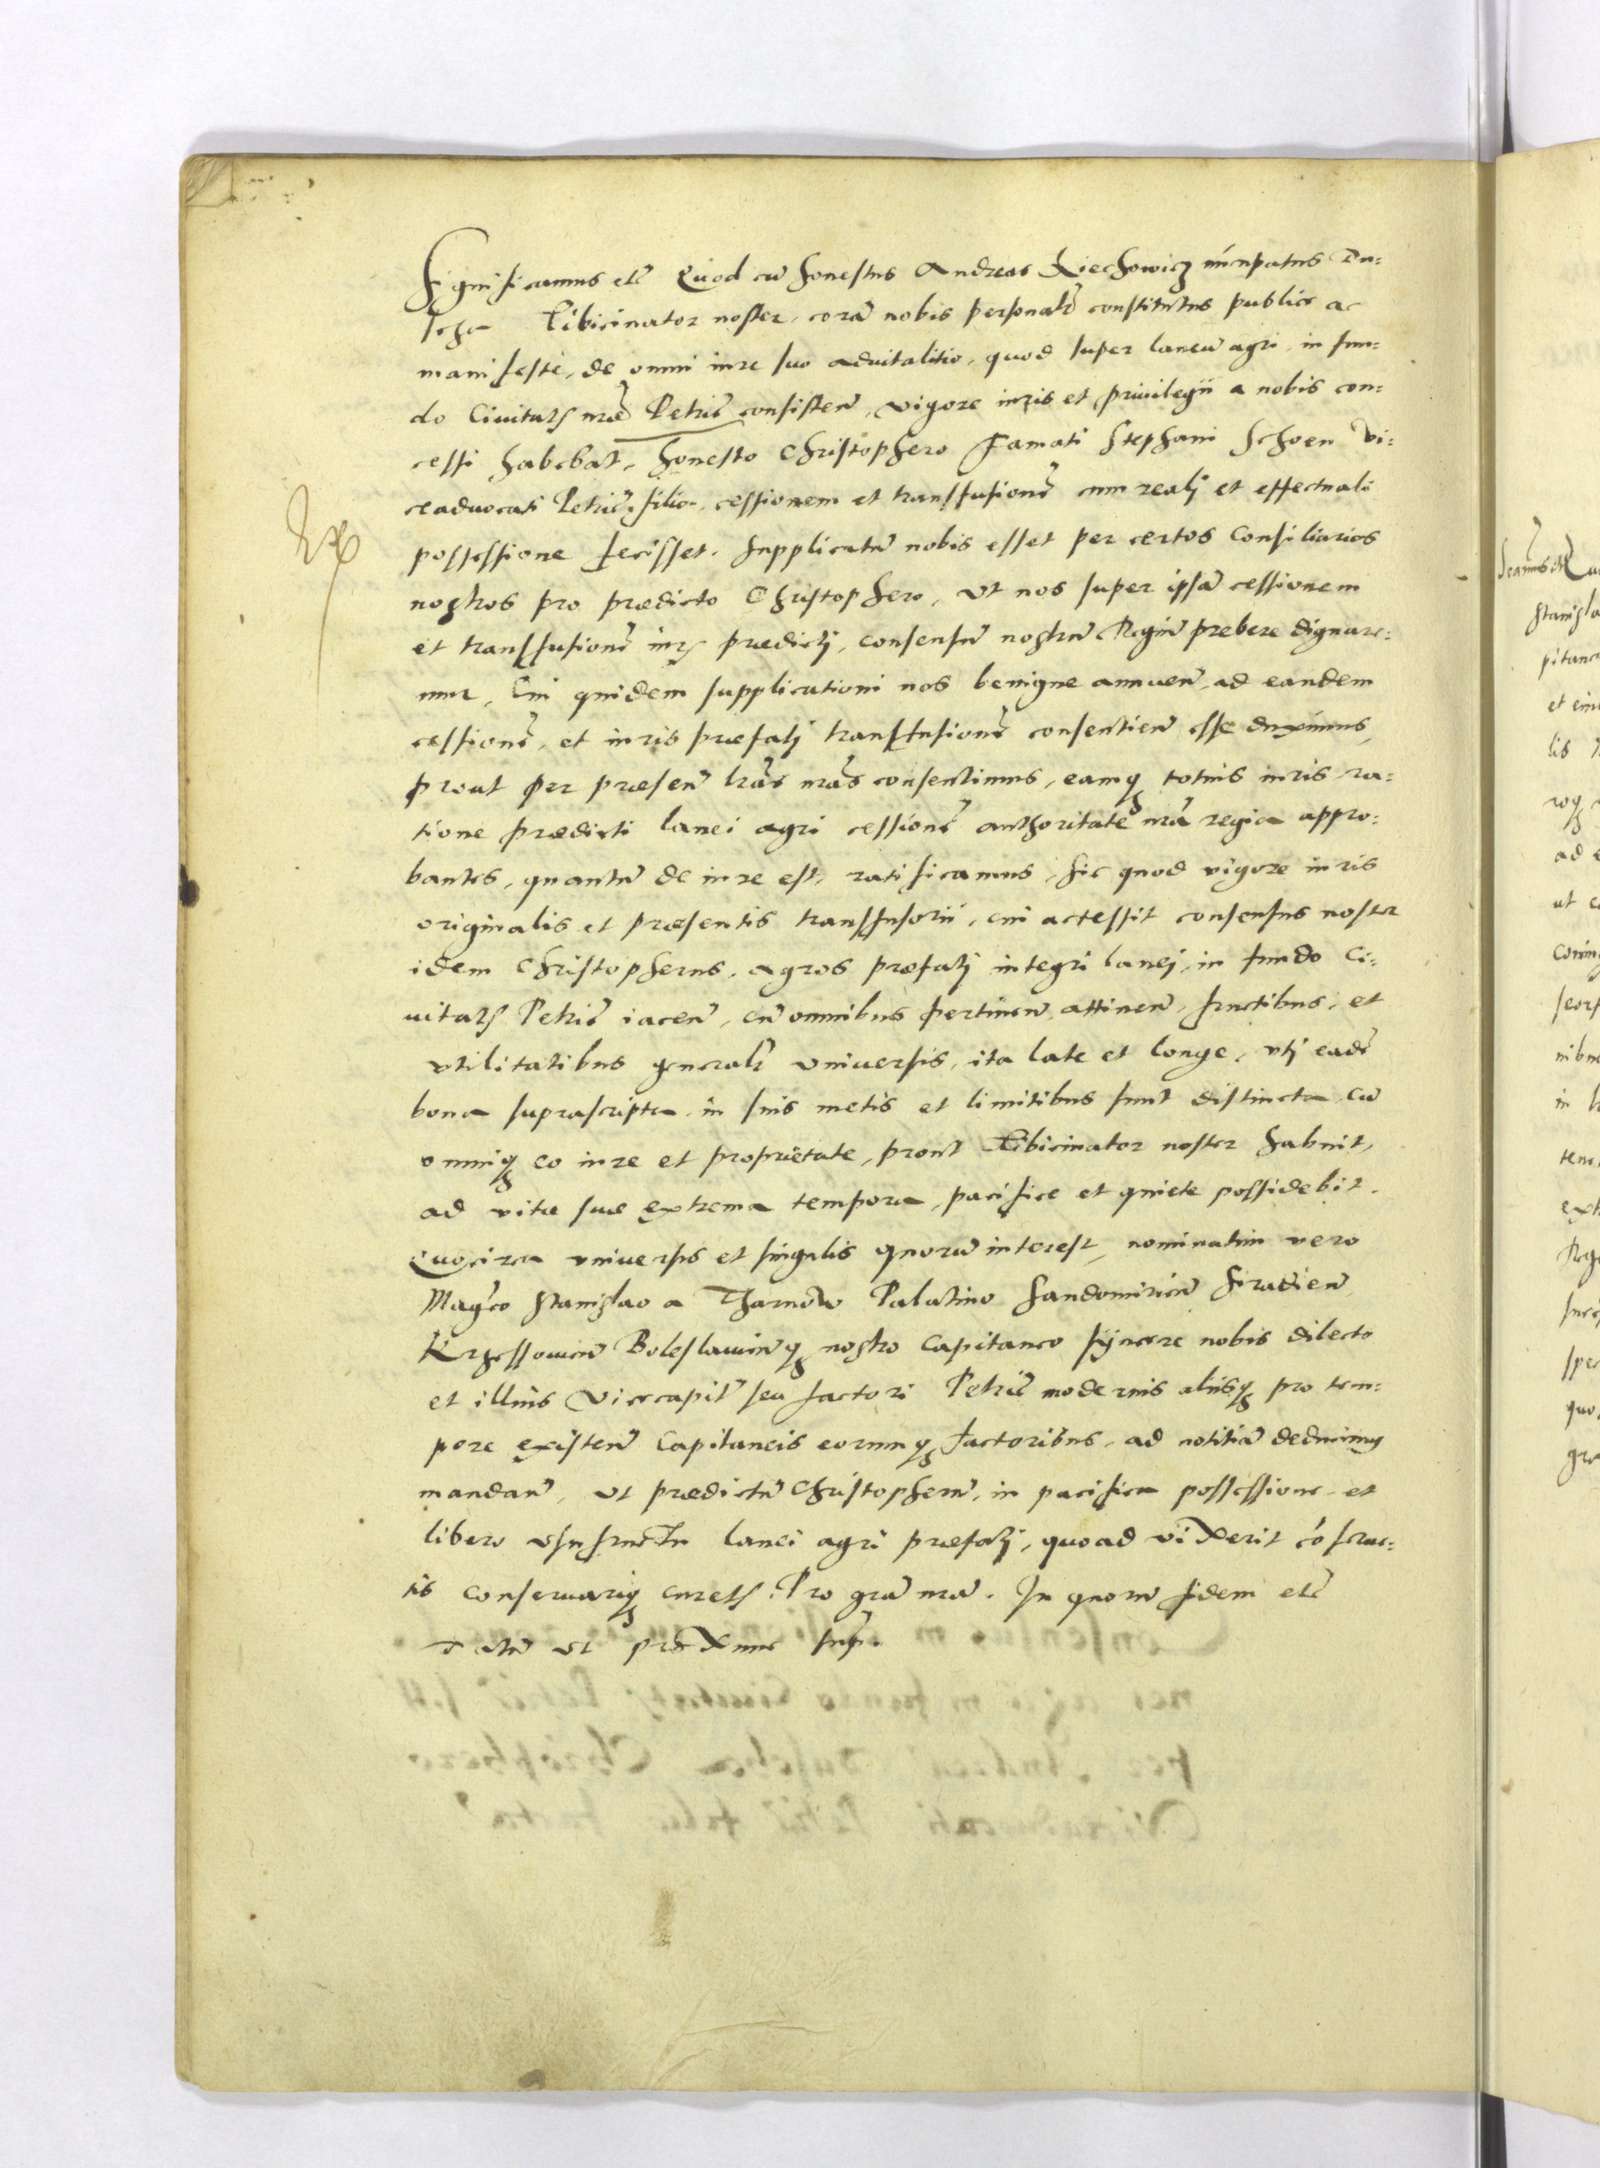 Significamus etc̃ Quod cũ honestus Andreas Kiechowicz nuncupatus Du-
scha Tibicinator noster, corã nobis personalr̃ constitutus publice ac
manifeste, de omni iure suo aduitalitio, quod super laneũ agri in fun-
do Ciuitatis nrae Petric̃ consisteñ, vigore iuris et priuilegii a nobis con-
cessi habebat, honesto Christophero Famati Stephani Schoen Vi-
ceaduocati Petric̃ filio, cessionem et transfusionẽ cum realj et effectuali
possessione fecisset. Supplicatũ nobis esset per certos Consiliarios
nostros pro praedicto Christophero, vt nos super ipsã cessionem
et transfusionẽ iuris praedictj, consensũ nostrũ Regiũ prebere dignare-
mur, Cui quidem supplicationi nos benigne annueñ, ad eandem
cessionẽ, et iuris praefatj transfusionẽ consentieñ esse duximus,
prout per praeseñ lrãs nrãs consentimus, eamq̃ totius iuris ra-
tione praedicti lanei agri cessionẽ authoritate nrã regia appro-
bantes, quantũ de iure est, ratificamus, sic quod vigore iuris
originalis et praesentis transfusorii, cui accessit consensus noster
idem Christopherus, agros praefatj integri lanej, in fundo Ci-
uitatis Petric̃ iaceñ, cũ omnibus pertineñ attineñ, fructibus, et
vtilitatibus generalr̃ vniuersis, ita late et longe, vtj eadẽ
bona suprascripta in suis metis et limitibus sunt distincta cũ
omniq̃ eo iure et proprietate, prout Tibicinator noster habuit,
ad vitae suae extrema tempora, pacifice et quiete possidebit.
Quocirca vniuersis et singulis quorũ interest, nominatim vero
Magco Stanislao a Tharnow Palatino Sandomirieñ Siradieñ
Krzessowieñ Boleslauieñq̃ nostro Capitaneo syncere nobis dilecto
et illius Vicecapit̃ seu factori Petric̃ modernis aliisq̃ pro tem-
pore existeñ Capitaneis eorumq̃ factoribus, ad notitiã deducimus
mandañ, vt praedictũ Christopherũ, in pacifica possessione et
libero vsufructu lanei agri praefatj, quoad vixerit cõserue-
tis conseruariq̃ curetis. Pro grã nrã. In quorũ fidem etc̃
Datũ vt proxime supr̃.